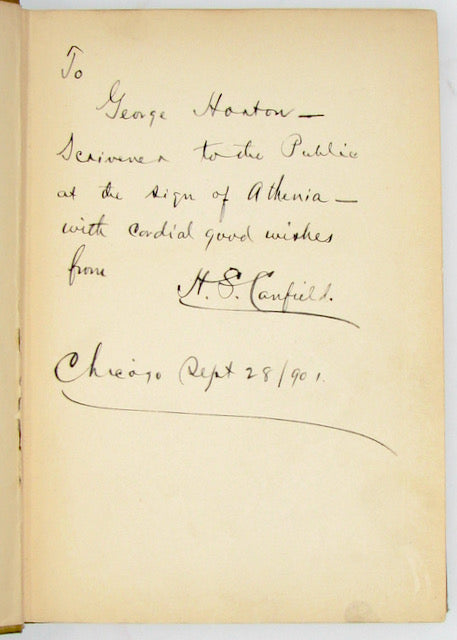 To
George Horton —
Scrivener to the Public
at the sign of Athenia —
with cordial good wishes
from
H. S. Canfield.
Chicago Sept 28/901.